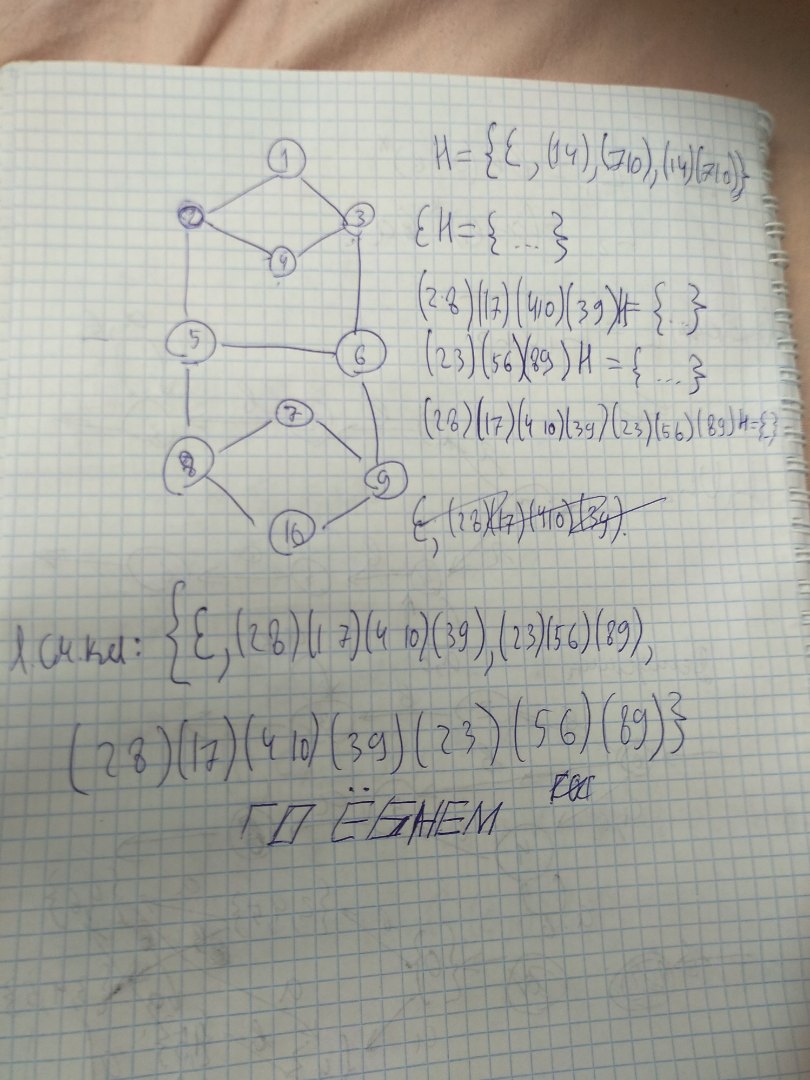 1
2
3
4
5
6
7
8
9
10
H = {Ɛ, (14), (710), (14)(710)}
ƐH = { ... }
(28)(17)(410)(39)H = {...}
(23)(56)(89) H = { ... }
(28)(17)(4 10)(39)(23)(56)(89)H={}
Ɛ, (28)(17)(410)(39).
л.см.кл: {Ɛ, (28)(17)(4 10)(39), (23)(56)(89),
(28)(17)(4 10)(39)(23)(56)(89)}
ГО ЁБНЕМ